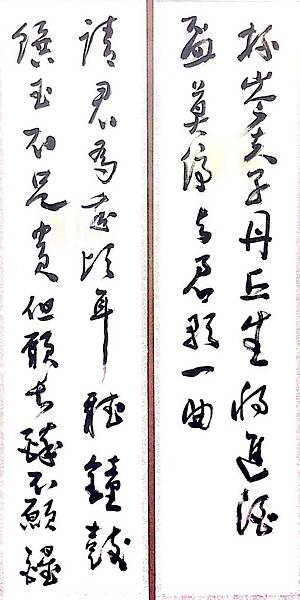 杯岑夫子丹丘生將進酒
盃莫停与君歌一曲
請君為我傾耳聽鐘鼓
饌玉不足貴但願長醉不願醒